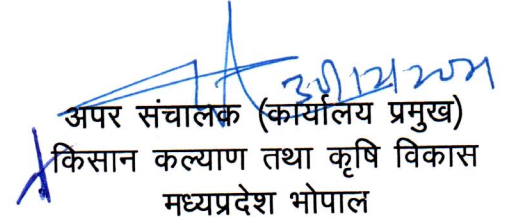 अपर संचालक (कार्यालय प्रमुख)
किसान कल्याण तथा कृषि विकास
मध्यप्रदेश भोपाल